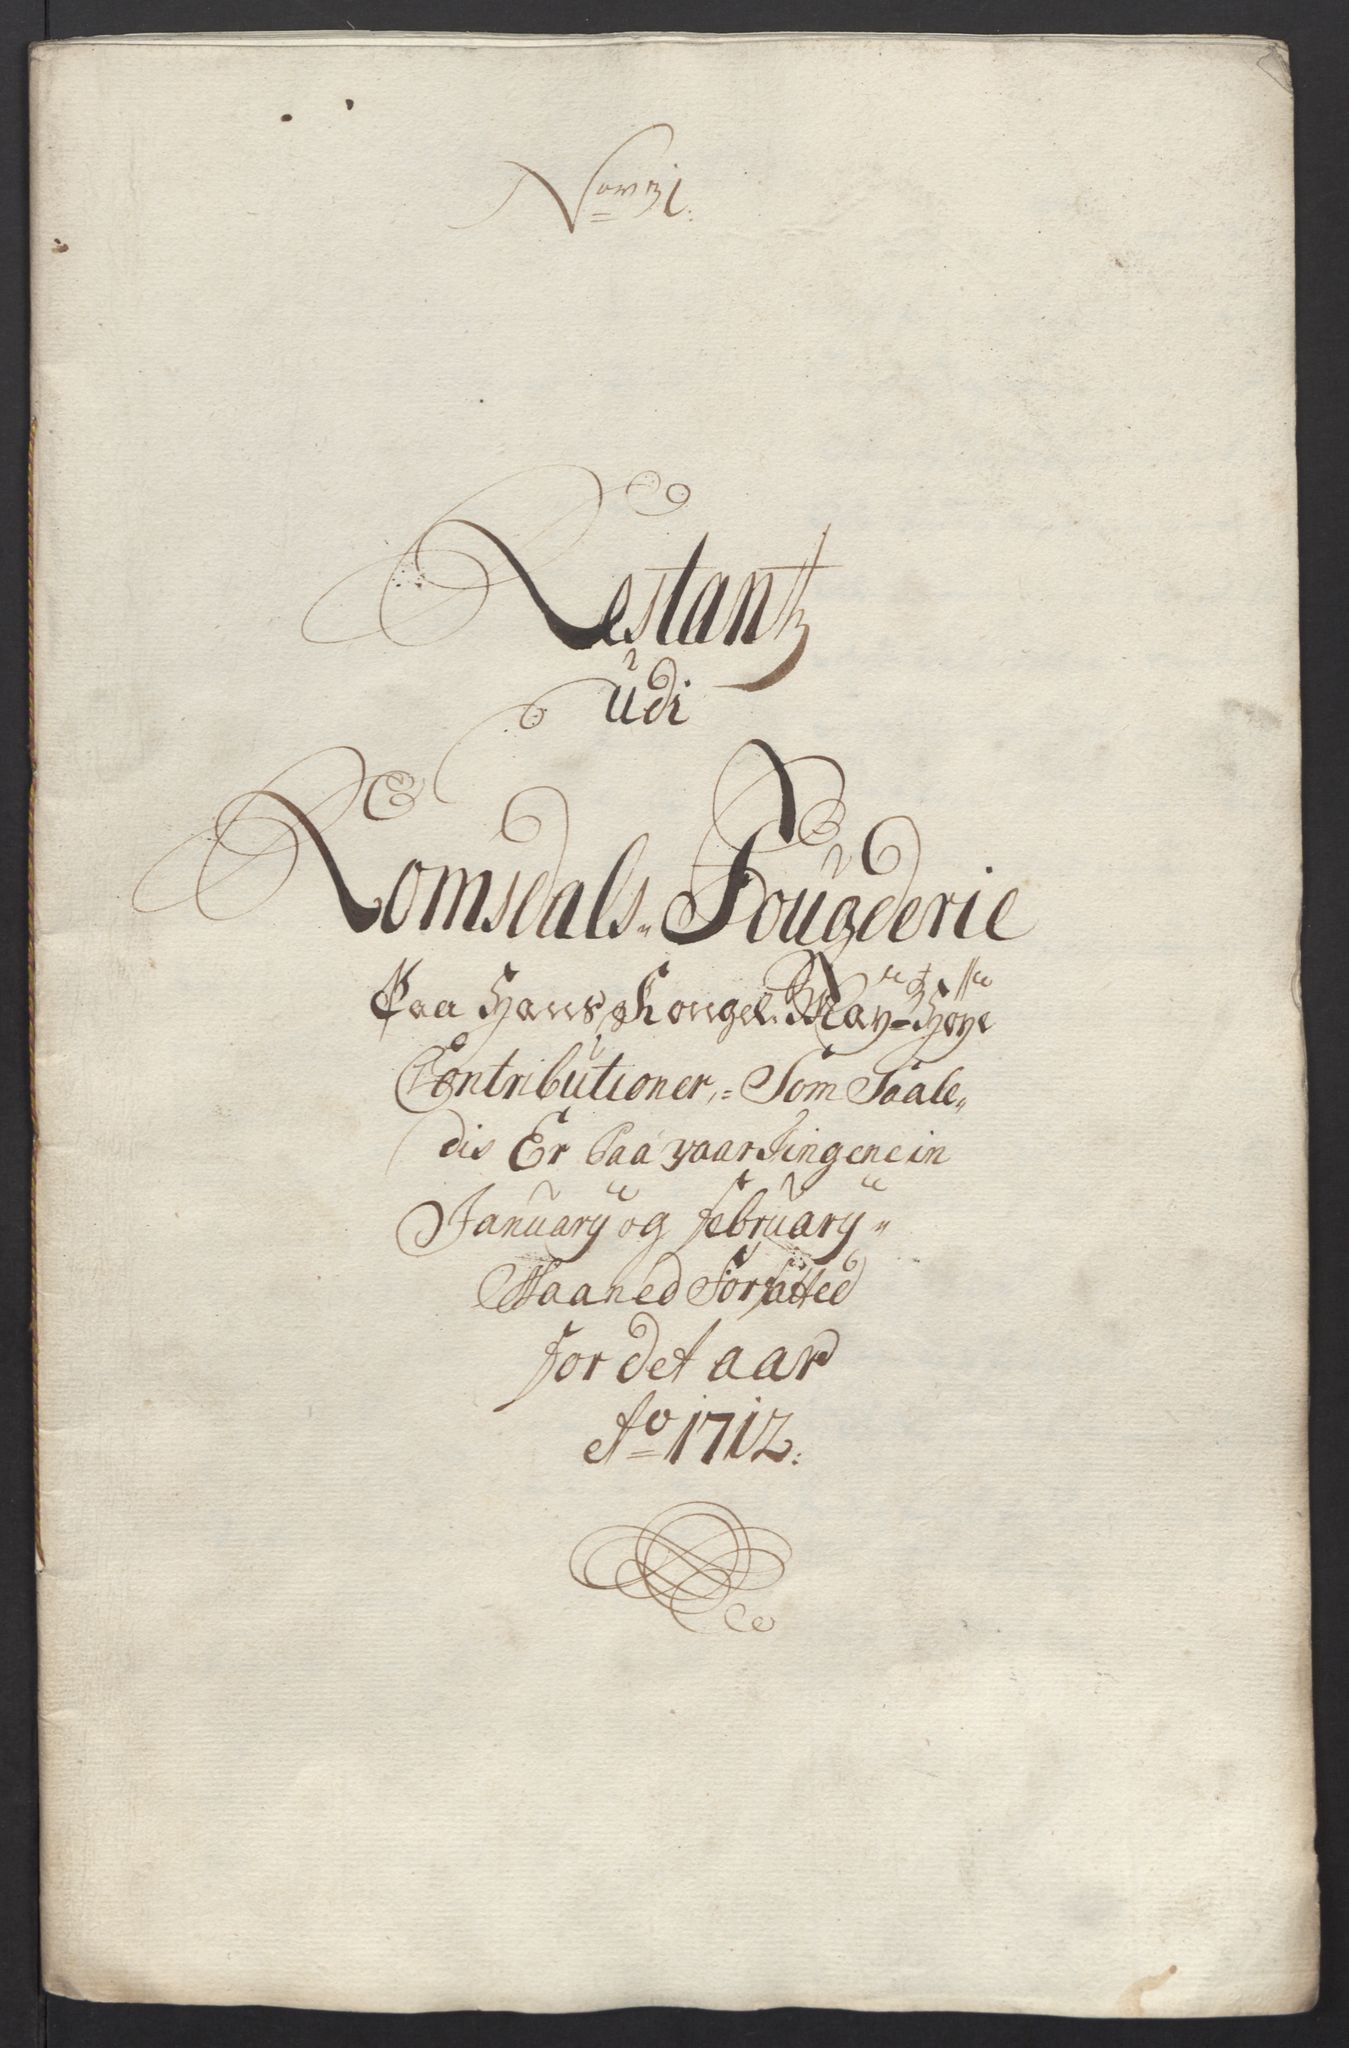 Nom 31.
Restantz
udi
Romsdals Fougderie
Paa Hans Kongel. May.tz Høye
Contributioner, Som Saale
dis Er Paa vaar Tingene in
January og February
Maaned Forfatted
for det aar
Ao 1712.